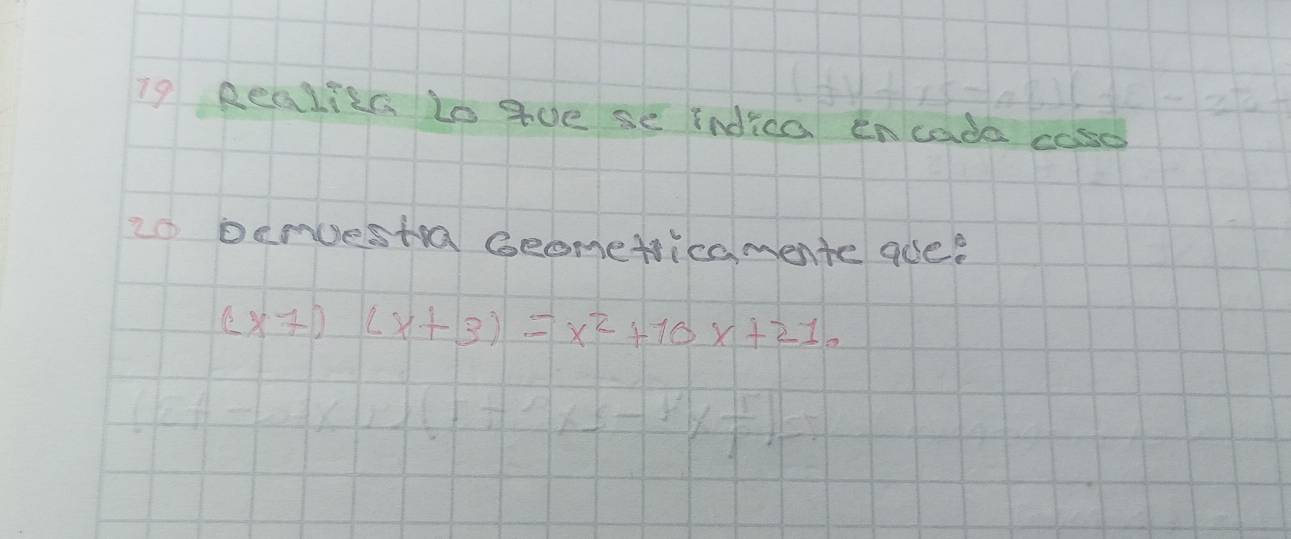 19 Realiza lo que se indica en cada caso
20 Demuestra Geometricamente que:
(x7) (x+3) = x² + 10x + 21.